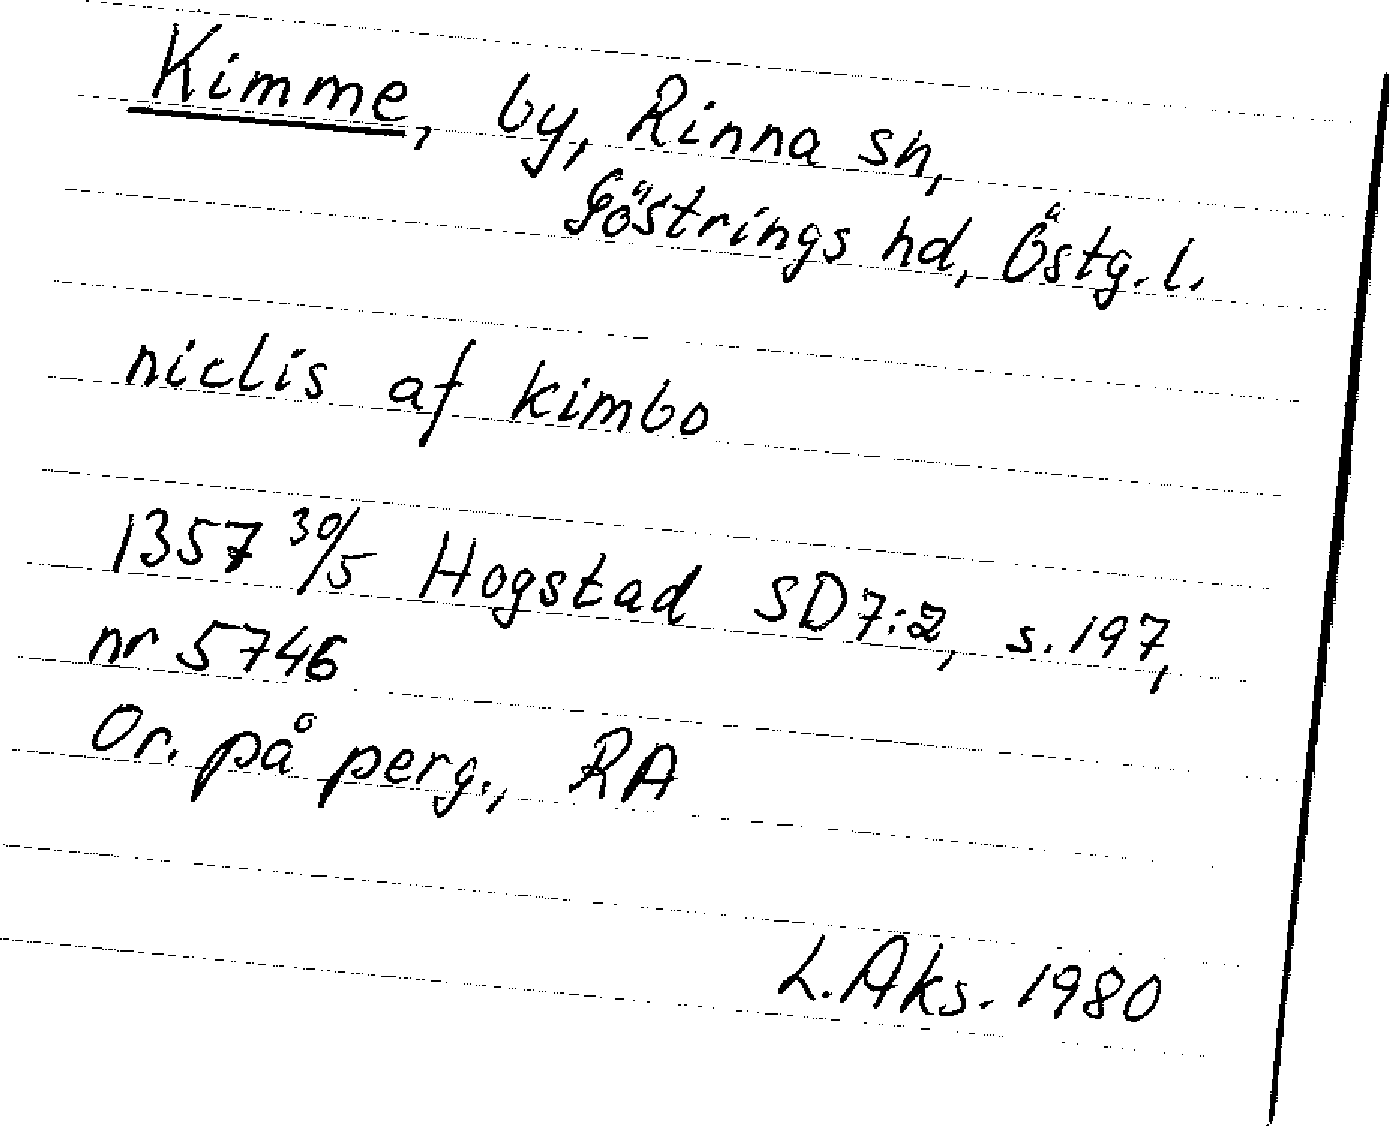 Kimme, by, Rinna sn,
Göstrings hd, Östg. l.
niclis af kimbo
1357 30/5 Hogstad SD 7:2, s. 197,
nr 5746
Or. på perg., RA
L. Aks. 1980